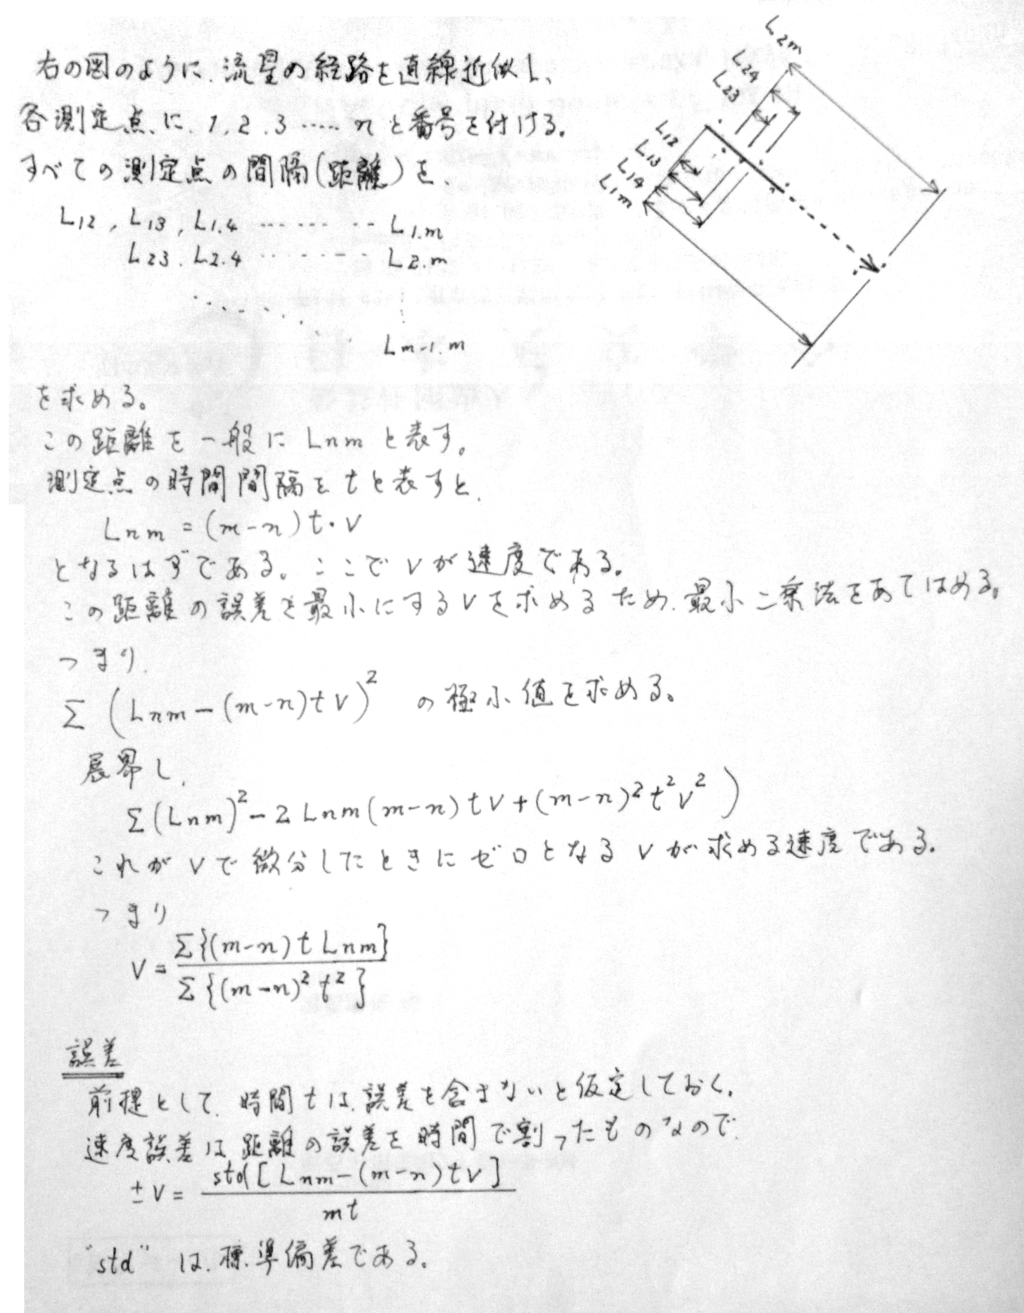 右の図のように 流星の経路を直線近似し、
各測定点に、1, 2, 3 ‥‥‥ n と番号を付ける。
すべての測定点の間隔(距離)を
L12 , L13 , L1.4 ‥‥‥‥‥ L1.m
L23 . L2.4 ‥‥‥‥‥ L2.m
Lm-1.m
を求める。
この距離を一般に Lnm と表す。
測定点の時間間隔を t と表すと、
Lnm = (m-n) t・V
となるはずである。ここで V が速度である。
この距離の誤差を最小にする V を求めるため、最小二乗法をあてはめる。
つまり、
Σ (Lnm - (m-n) t V)² の極小値を求める。
展開し、
Σ (Lnm)² - 2 Lnm (m-n) t V + (m-n)² t² V² )
これが V で微分したときにゼロとなる V が求める速度である。
つまり
V = Σ{(m-n) t Lnm} / Σ{(m-n)² t²}
誤差
前提として、時間 t は、誤差を含まないと仮定しておく。
速度誤差は距離の誤差を時間で割ったものなので、
±V = std[Lnm - (m-n) t V] / mt
"std" は、標準偏差である。
L2m
L24
L23
L12
L13
L14
L1m